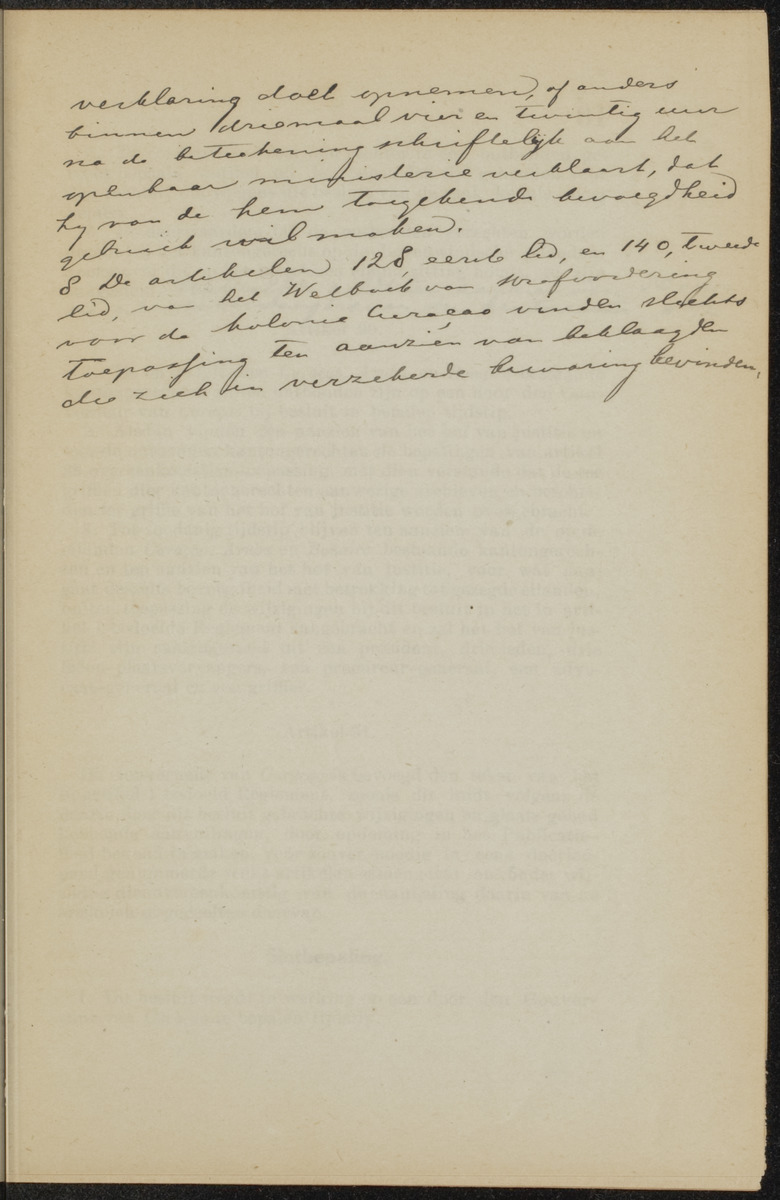 verklaring doet opnemen, of anders
binnen driemaal vier en twintig uur
na de beteekening schriftelijk aan het
openbaar ministerie verklaart, dat
hy van de hem toegekende bevoegdheid
gebruik wil maken.
8 De artikelen 128, eerste lid, en 140, tweede
lid, van het Wetboek van strafvordering
voor de kolonie Curaçao vinden slechts
toepassing ten aanzien van beklaagden
die zich in verzekerde bewaring bevinden.